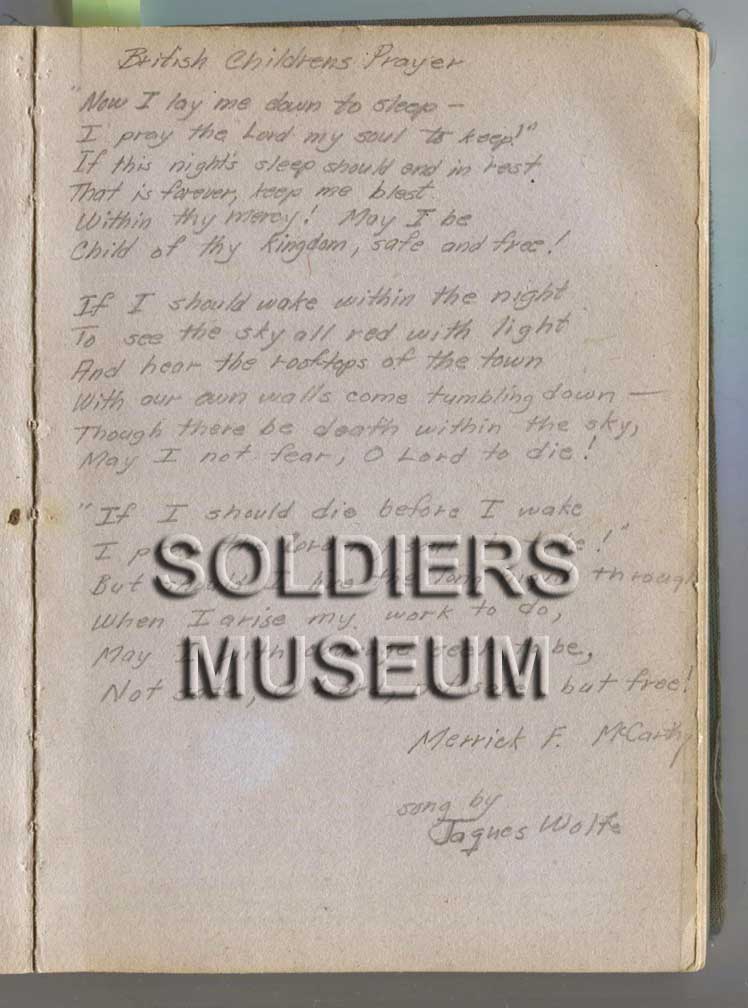 British Childrens Prayer
"Now I lay me down to sleep —
I pray the Lord my soul to keep!"
If this night's sleep should end in rest
That is forever, keep me blest
Within thy mercy! May I be
Child of thy kingdom, safe and free!
If I should wake within the night
To see the sky all red with light
And hear the rooftops of the town
With our own walls come tumbling down —
Though there be death within the sky,
May I not fear, O Lord to die!
"If I should die before I wake
I the Lord my soul to take!"
But should I live the long night through
When I arise my work to do,
May I with courage seek to be,
Not safe, but free!
Merrick F. McCarthy
song by
Jaques Wolfe
SOLDIERS
MUSEUM